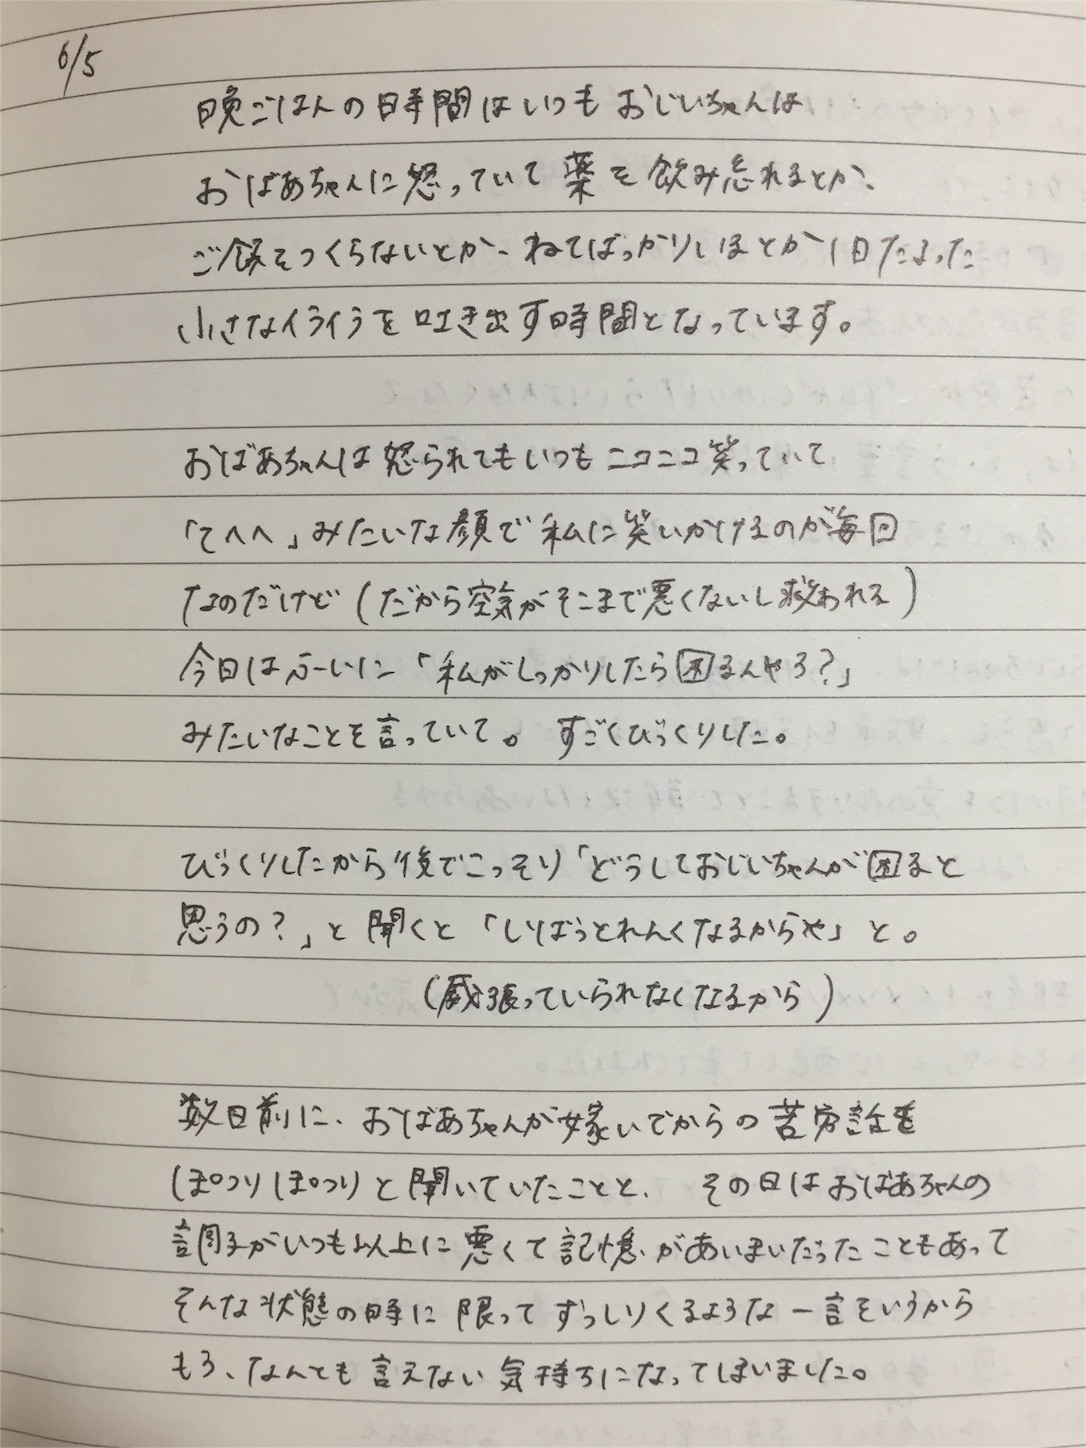 6/5
晩ごはんの時間はいつもおじいちゃんは
おばあちゃんに怒っていて薬を飲み忘れるとか、
ご飯をつくらないとか、ねてばっかりいるとか1日たまった
小さなイライラを吐き出す時間となっています。
おばあちゃんは怒られてもいつもニコニコ笑っていて
「てへへ」みたいな顔で私に笑いかけるのが毎回
なのだけど(だから空気がそこまで悪くないし救われる)
今日はふーいに「私がしっかりしたら困るんやろ?」
みたいなことを言っていて。すごくびっくりした。
びっくりしたから後でこっそり「どうしておじいちゃんが困ると
思うの?」と聞くと「いばっとれんくなるからや」と。
(威張っていられなくなるから)
数日前に、おばあちゃんが嫁いでからの苦労話を
ぽつりぽつりと聞いていたことと、その日はおばあちゃんの
調子がいつも以上に悪くて記憶があいまいだったこともあって
そんな状態の時に限ってずっしりくるような一言をいうから
もう、なんとも言えない気持ちになってしまいました。